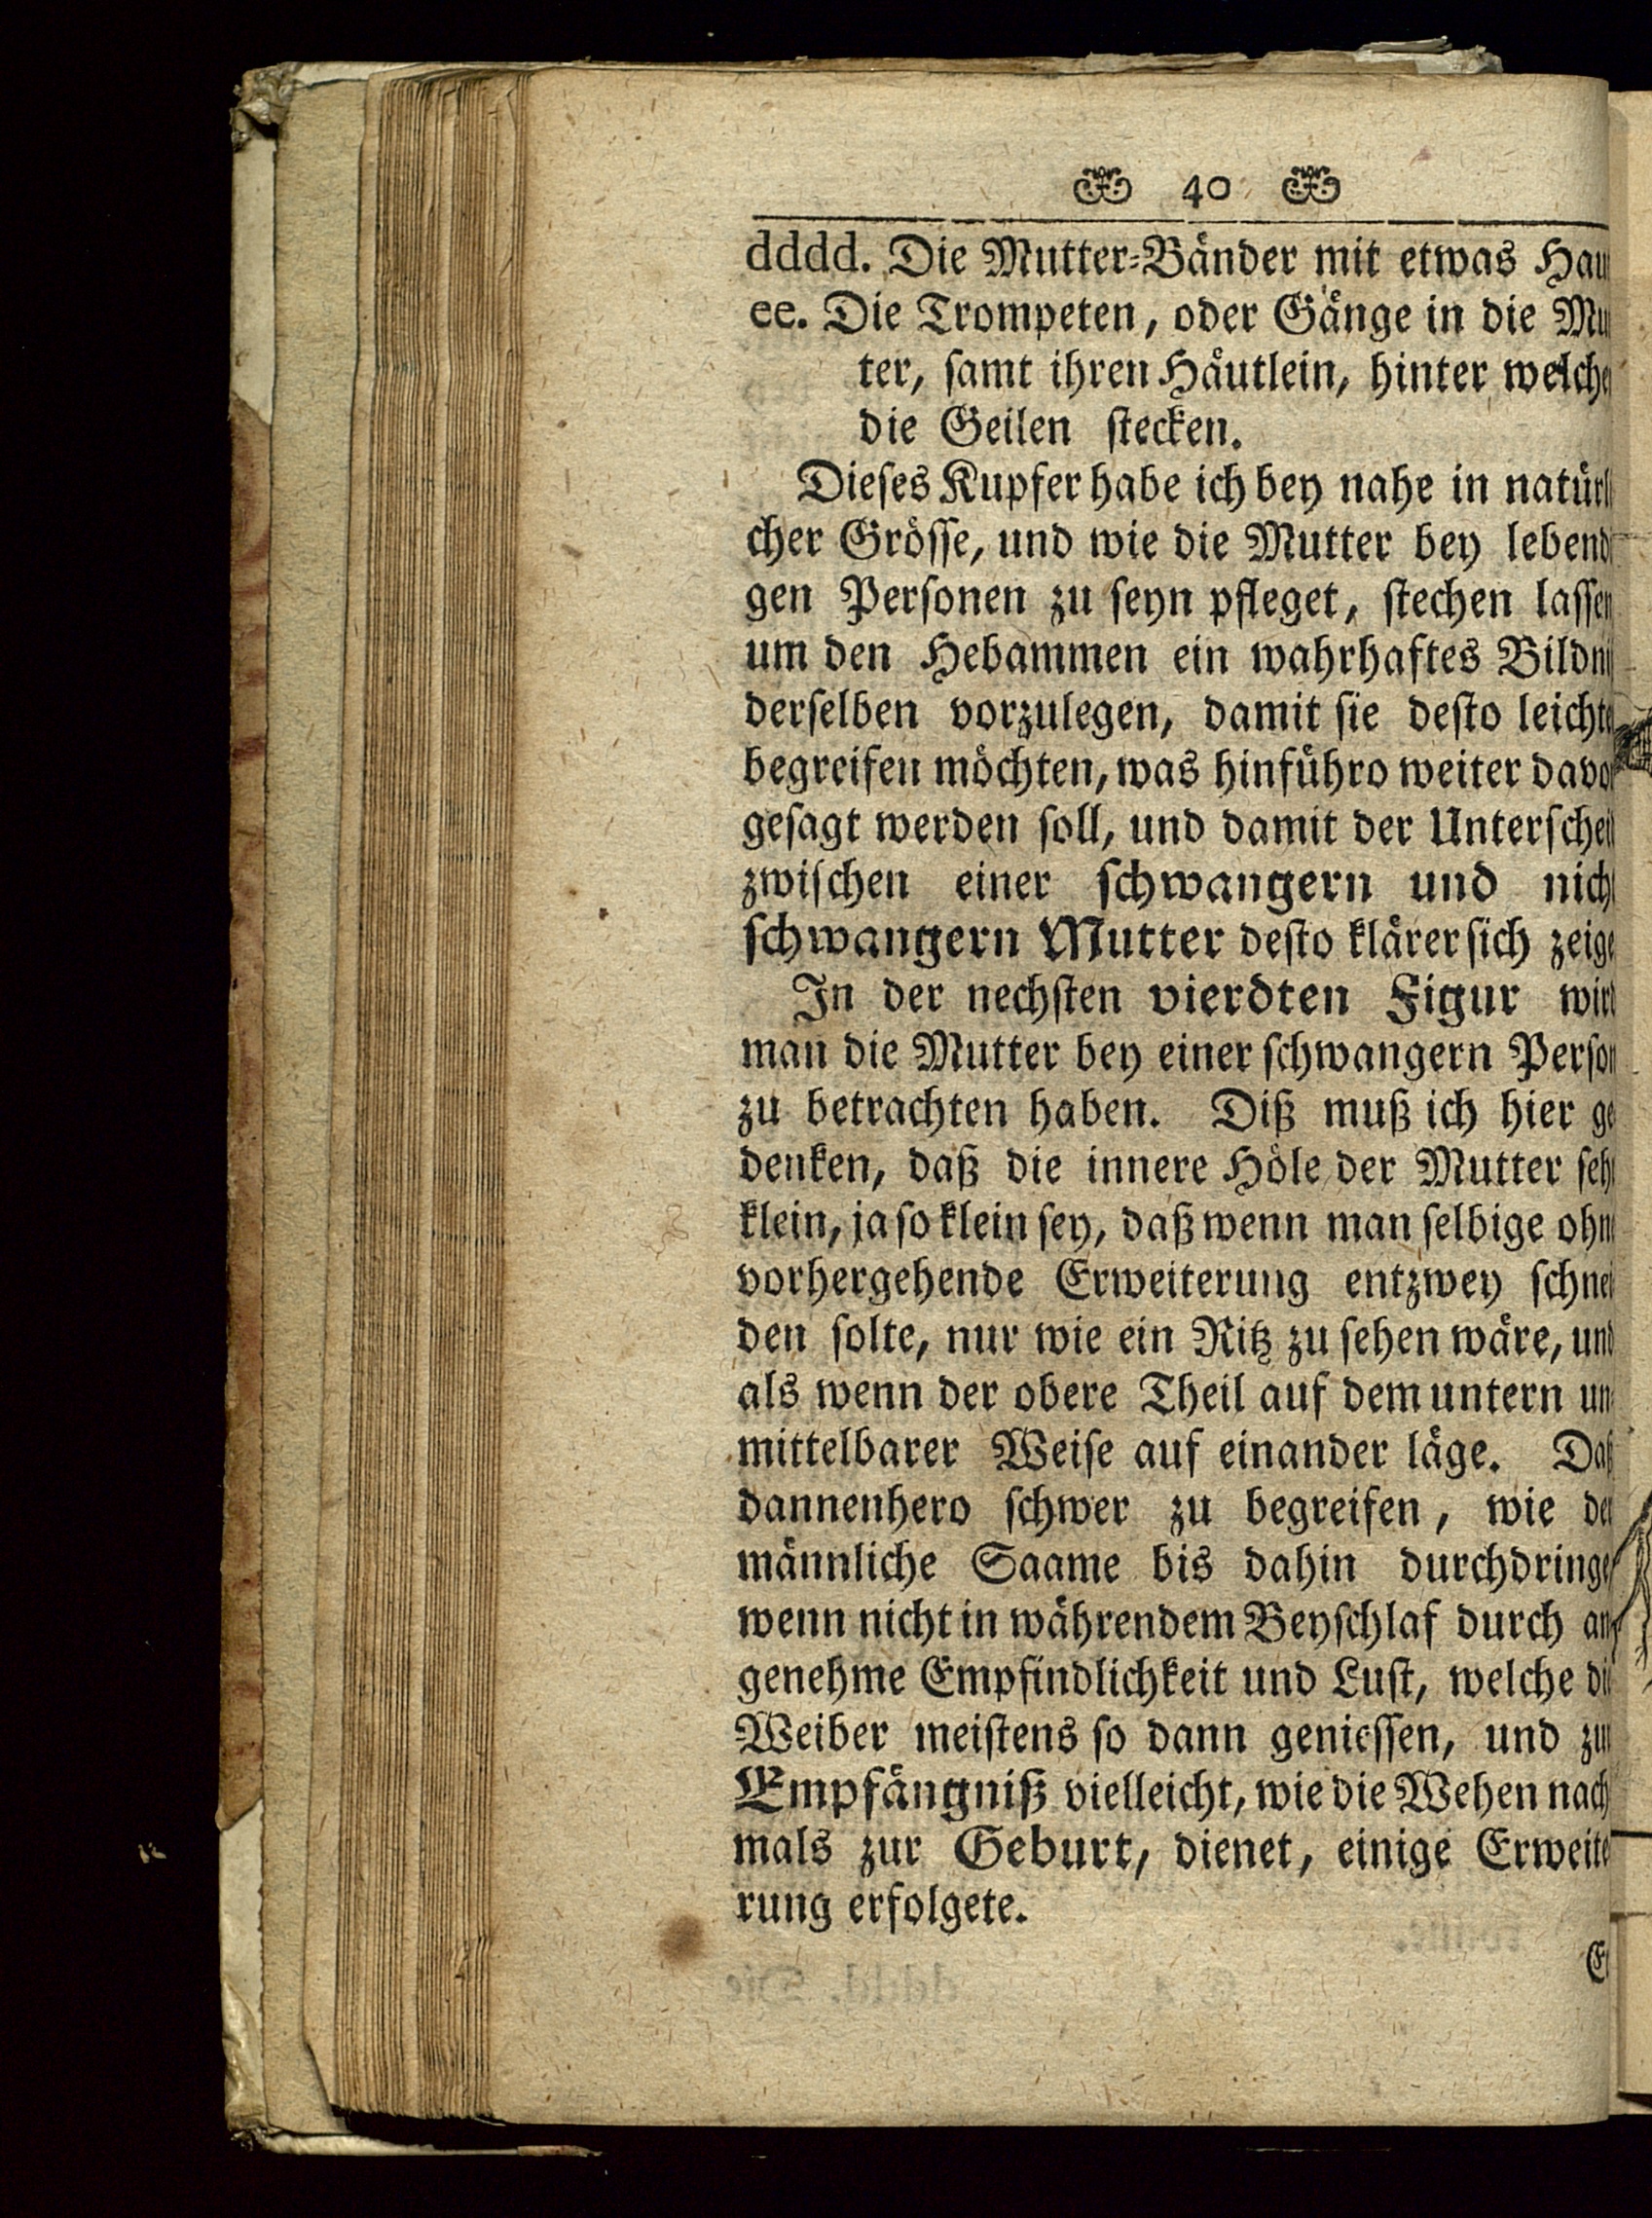 40
dddd. Die Mutter-Bänder mit etwas Hau
ee. Die Trompeten, oder Gänge in die Mu
ter, samt ihren Häutlein, hinter welche
die Geilen stecken.
Dieses Kupfer habe ich bey nahe in natürli
cher Grösse, und wie die Mutter bey lebendi
gen Personen zu seyn pfleget, stechen lassen
um den Hebammen ein wahrhaftes Bildni
derselben vorzulegen, damit sie desto leichte
begreifen möchten, was hinführo weiter davo
gesagt werden soll, und damit der Unterschei
zwischen einer schwangern und nich
schwangern Mutter desto klärer sich zeige
In der nechsten vierdten Figur wird
man die Mutter bey einer schwangern Person
zu betrachten haben. Diß muß ich hier ge
denken, daß die innere Höle der Mutter seh
klein, ja so klein sey, daß wenn man selbige ohne
vorhergehende Erweiterung entzwey schnei
den solte, nur wie ein Ritz zu sehen wäre, und
als wenn der obere Theil auf dem untern un
mittelbarer Weise auf einander läge. Daß
dannenhero schwer zu begreifen, wie der
männliche Saame bis dahin durchdringe
wenn nicht in währendem Beyschlaf durch an
genehme Empfindlichkeit und Lust, welche die
Weiber meistens so dann geniessen, und zur
Empfängniß vielleicht, wie die Wehen nach
mals zur Geburt, dienet, einige Erweite
rung erfolgete.